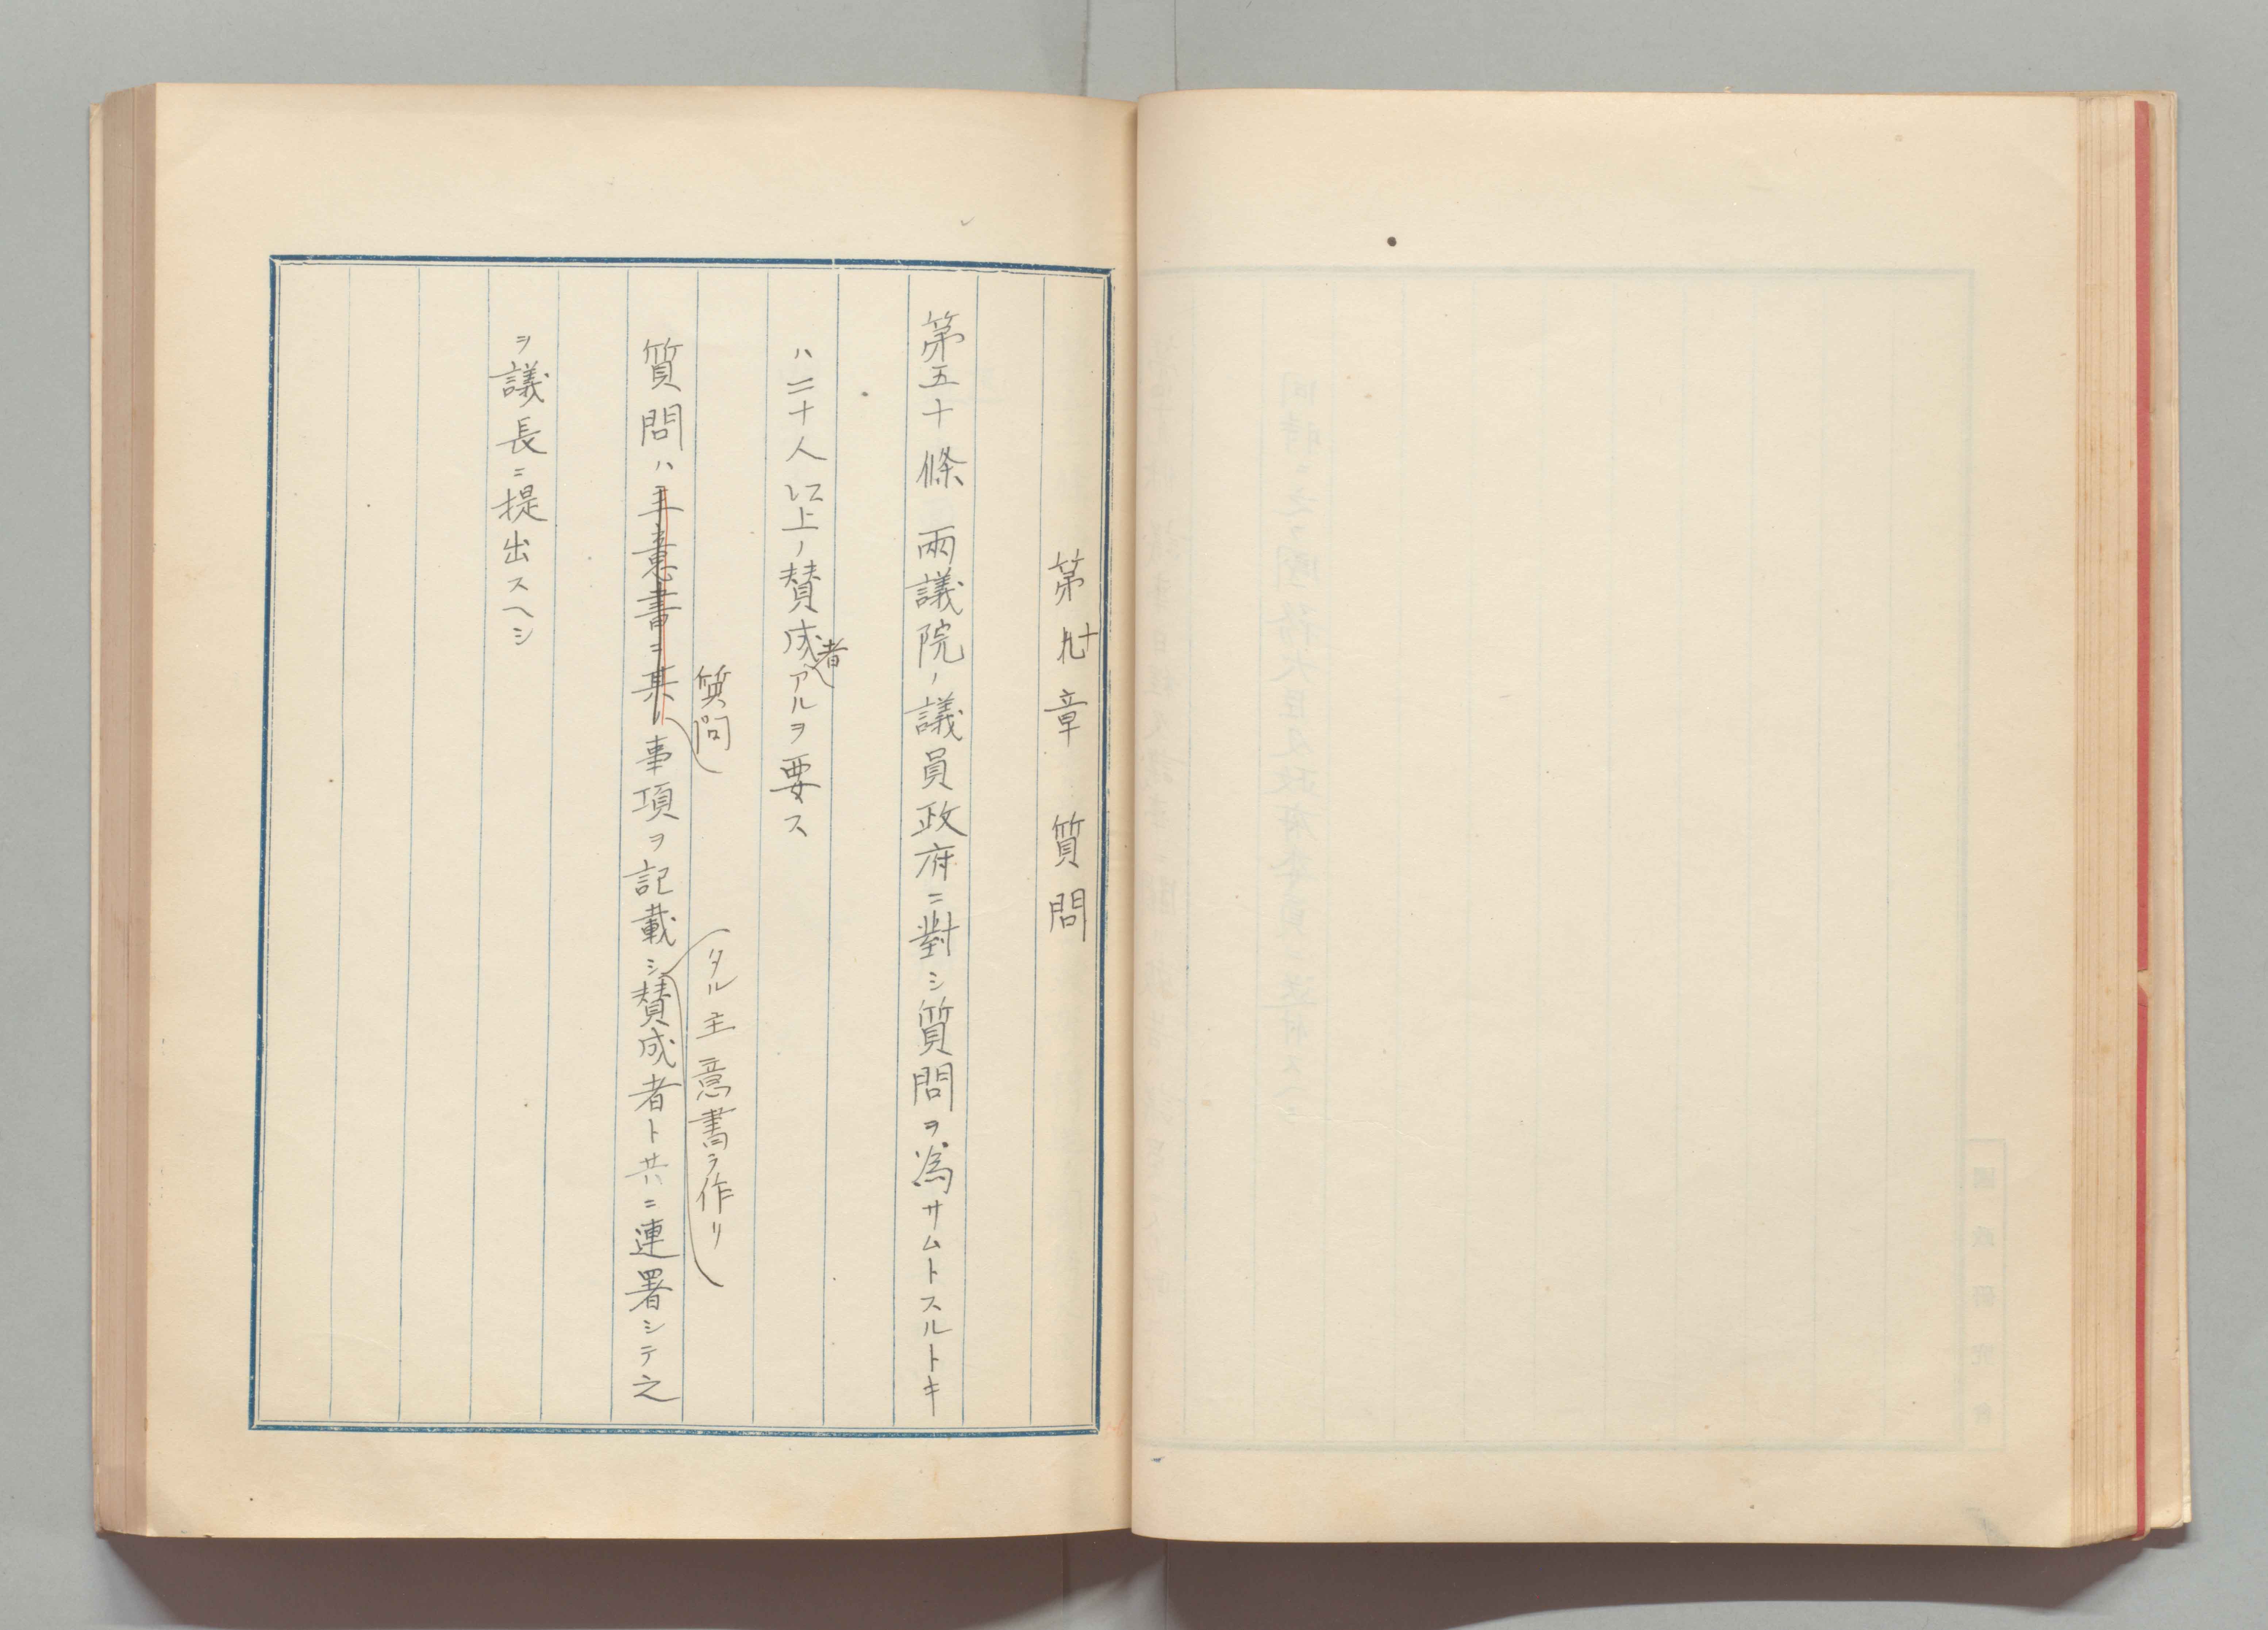 第九十章 質問
第五十條 兩議院ノ議員政府ニ對シ質問ヲ為サムトスルトキ
者
ハ二十人以上ノ賛成アルヲ要ス
質問 タル主意書ヲ作リ
質問ハ主意書ニ其ノ事項ヲ記載シ賛成者ト共ニ連署シテ之
ヲ議長ニ提出スヘシ